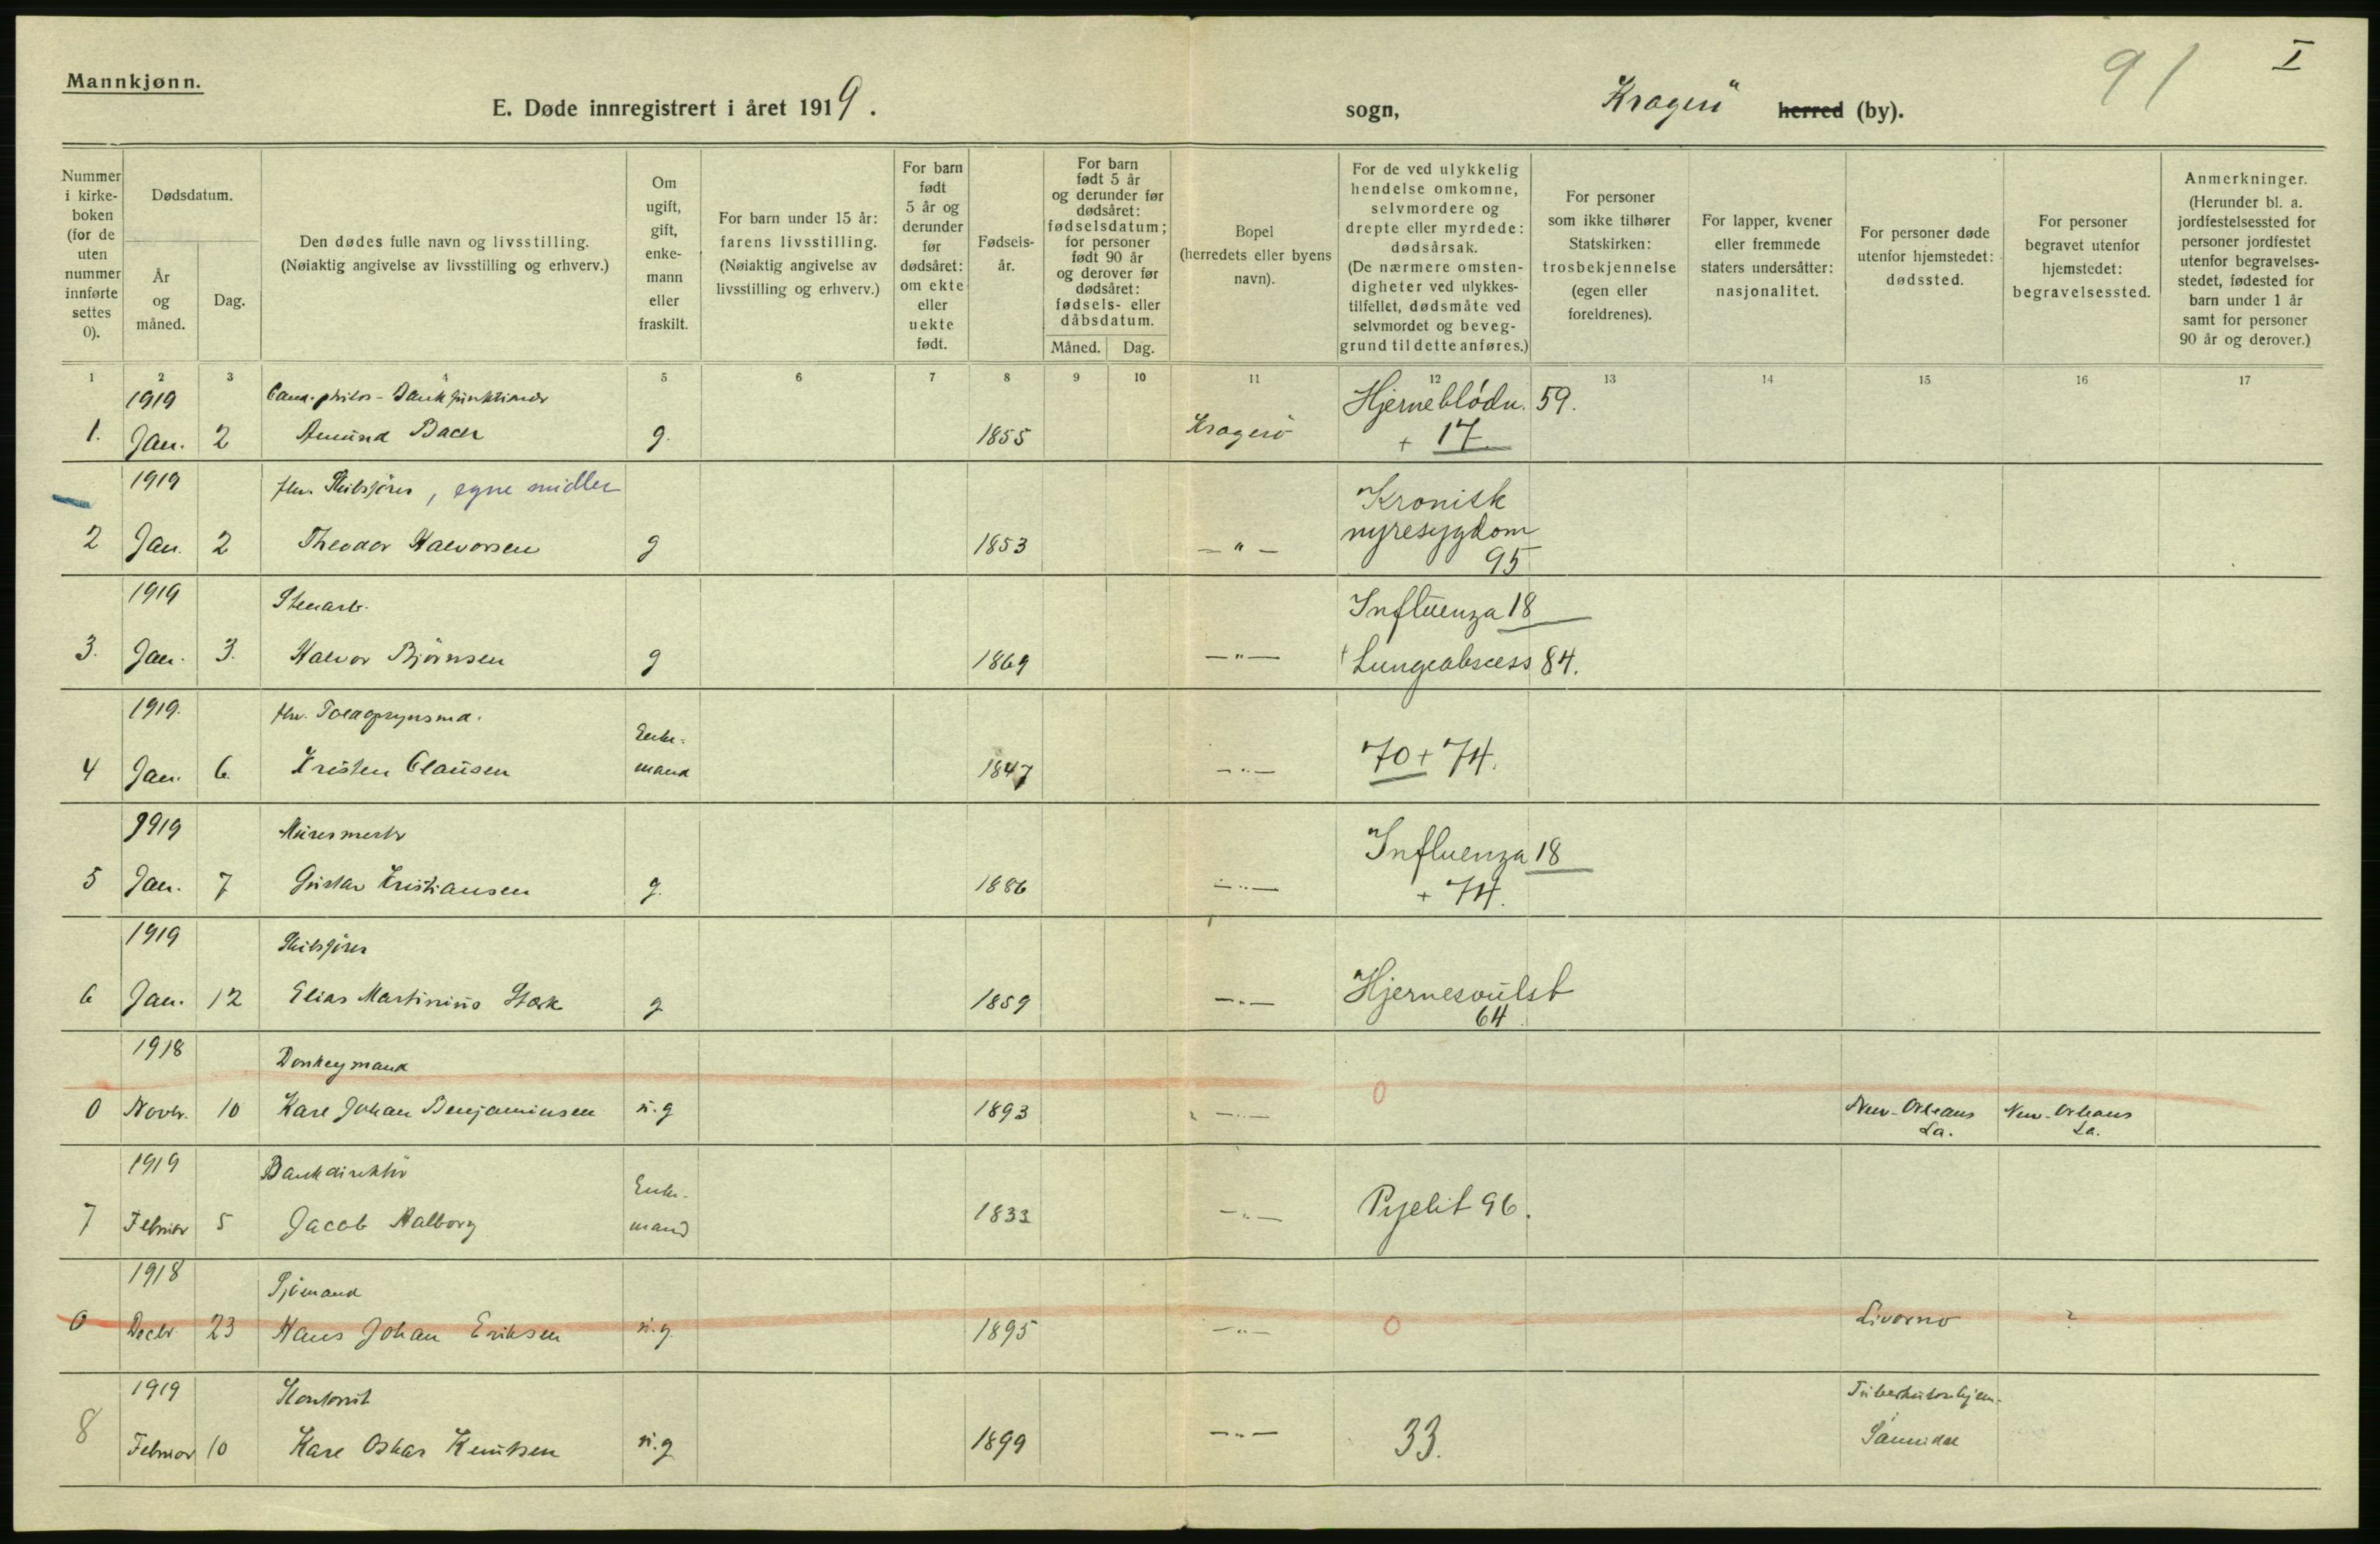 Mannkjønn.
E. Døde innregistrert i året 1919.
sogn, Kragerö herred (by).
91
I
Nummer i kirkeboken (for de uten nummer innførte settes 0).
Dødsdatum.
År og måned.
Dag.
Den dødes fulle navn og livsstilling. (Nøiaktig angivelse av livsstilling og erhverv.)
Om ugift, gift, enkemann eller fraskilt.
For barn under 15 år: farens livsstilling. (Nøiaktig angivelse av livsstilling og erhverv.)
For barn født 5 år og derunder før dødsåret: om ekte eller uekte født.
Fødselsår.
For barn født 5 år og derunder før dødsåret: fødselsdatum; for personer født 90 år og derover før dødsåret: fødsels- eller dåbsdatum.
Måned.
Dag.
Bopel (herredets eller byens navn).
For de ved ulykkelig hendelse omkomne, selvmordere og drepte eller myrdede: dødsårsak. (De nærmere omstendigheter ved ulykkestilfellet, dødsmåte ved selvmordet og beveggrund til dette anføres.)
For personer som ikke tilhører Statskirken: trosbekjennelse (egen eller foreldrenes).
For lapper, kvener eller fremmede staters undersåtter: nasjonalitet.
For personer døde utenfor hjemstedet: dødssted.
For personer begravet utenfor hjemstedet: begravelsessted.
Anmerkninger. (Herunder bl. a. jordfestelsessted for personer jordfestet utenfor begravelsesstedet, fødested for barn under 1 år samt for personer 90 år og derover.)
1 2 3 4 5 6 7 8 9 10 11 12 13 14 15 16 17
1919 Cand. philos - Bankfunktionær Hjerneblödn. 59.
1. Jan. 2 Amund g. 1855 Kragerö + 17
1919 fhv. Skibsförer, egne midler Kronisk
2 Jan. 2 Theodor Halvorsen g 1853 — " — nyresygdom
95
1919 Stenarb. Influenza 18
3. Jan. 3. Halvor Björnsen g 1869 — " — + Lungeabscess 84.
1919. fhv. Enke-
4 Jan. 6 Kristen Clausen mand 1847 — " — 70 + 74.
1919 Muresmestr Influenza 18
5 Jan. 7 Gustav Kristiansen g. 1886 — " — + 74.
1919 Skibsförer
6 Jan. 12 Elias Martinius g 1859 — " — Hjernesvulst
64
1918 Donkeymand
0 Novbr. 10 Karl Johan Benjaminsen u.g 1893 — " — 0 New-Orleans La. New-Orleans La.
1919 Bankdirektör Enke-
7 Februar 5 Jacob Aalborg mand 1833 — " — Pyelit 96.
1918 Sjömand
0 Decbr 23 Hans Johan Eriksen u.g. 1895 — " — 0 Livorno ?
1919 Kontorist Tuberkulosehjem-
8 Februar 10 Karl Oskar Knutsen u.g 1899 — " — 33. Sannidal